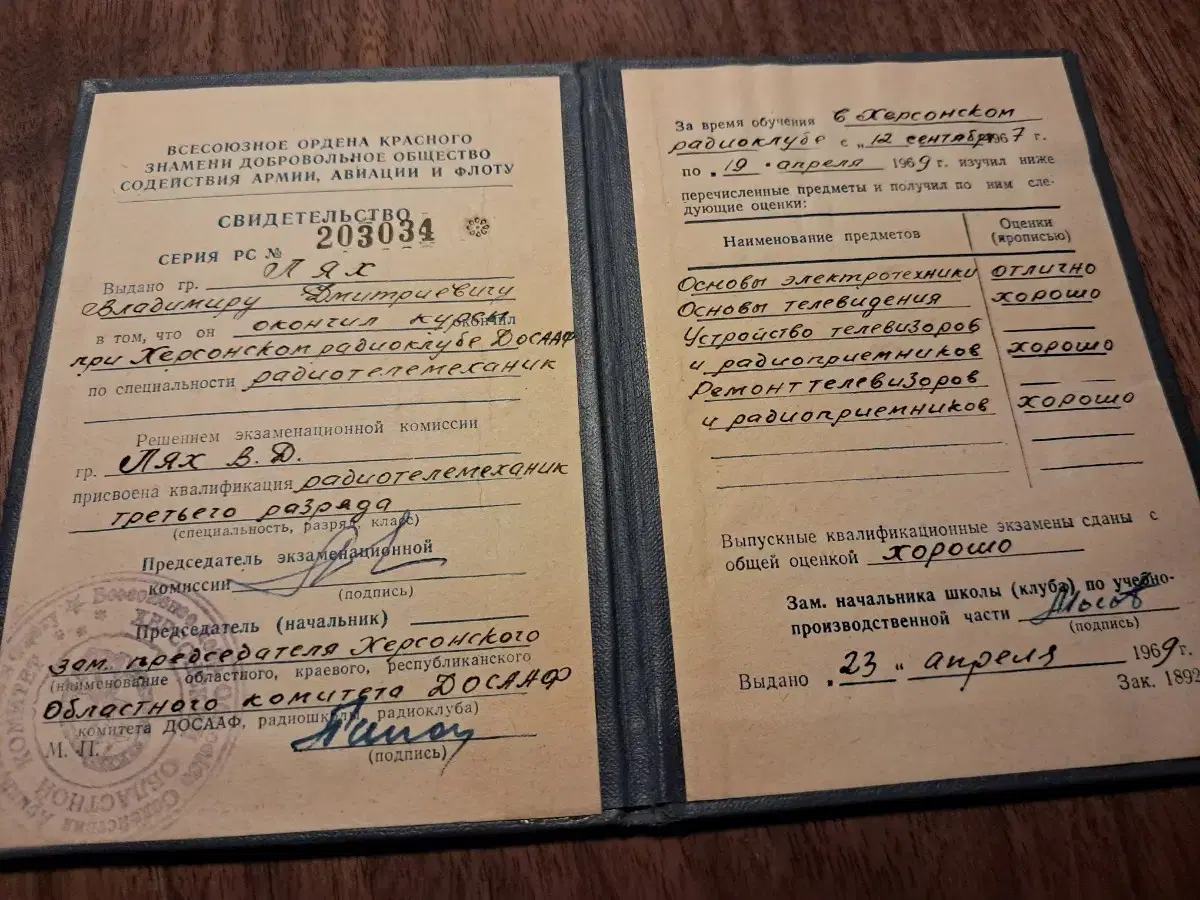 ВСЕСОЮЗНОЕ ОРДЕНА КРАСНОГО
ЗНАМЕНИ ДОБРОВОЛЬНОЕ ОБЩЕСТВО
СОДЕЙСТВИЯ АРМИИ, АВИАЦИИ И ФЛОТУ
СВИДЕТЕЛЬСТВО
СЕРИЯ РС № 203034
Выдано гр. Лях
Владимиру Дмитриевичу
в том, что он окончил курсы окончил
при Херсонском радиоклубе ДОСААФ
по специальности радиотелемеханик
Решением экзаменационной комиссии
гр. Лях В.Д.
присвоена квалификация радиотелемеханик
третьего разряда
(специальность, разряд, класс)
Председатель экзаменационной
комиссии
(подпись)
Председатель (начальник)
зам. председателя Херсонского
(наименование областного, краевого, республиканского
Областного комитета ДОСААФ
комитета ДОСААФ, радиошколы, радиоклуба)
М. П.
(подпись)
ОБЛАСТНОЙ КОМИТЕТ
За время обучения в Херсонском
радиоклубе с „12 сентября 1967 г.
по „19 „ апреля 1969 г. изучил ниже
перечисленные предметы и получил по ним сле-
дующие оценки:
Наименование предметов Оценки
(прописью)
Основы электротехники отлично
Основы телевидения хорошо
Устройство телевизоров
и радиоприемников хорошо
Ремонт телевизоров
и радиоприемников хорошо
Выпускные квалификационные экзамены сданы с
общей оценкой хорошо
Зам. начальника школы (клуба) по учебно-
производственной части
(подпись)
Выдано „23 „ апреля 1969 г.
Зак. 1892